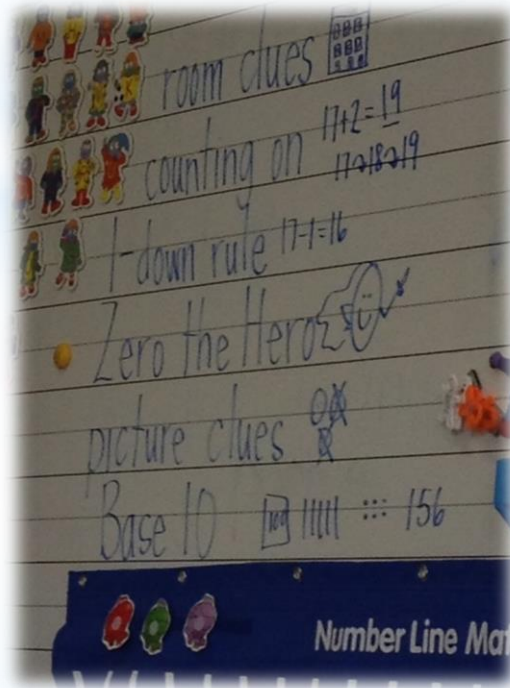 room clues
counting on 17+2=19
17→18→19
1-down rule 17-1=16
Zero the Hero
picture clues
Base 10 100 156
Number Line Mat